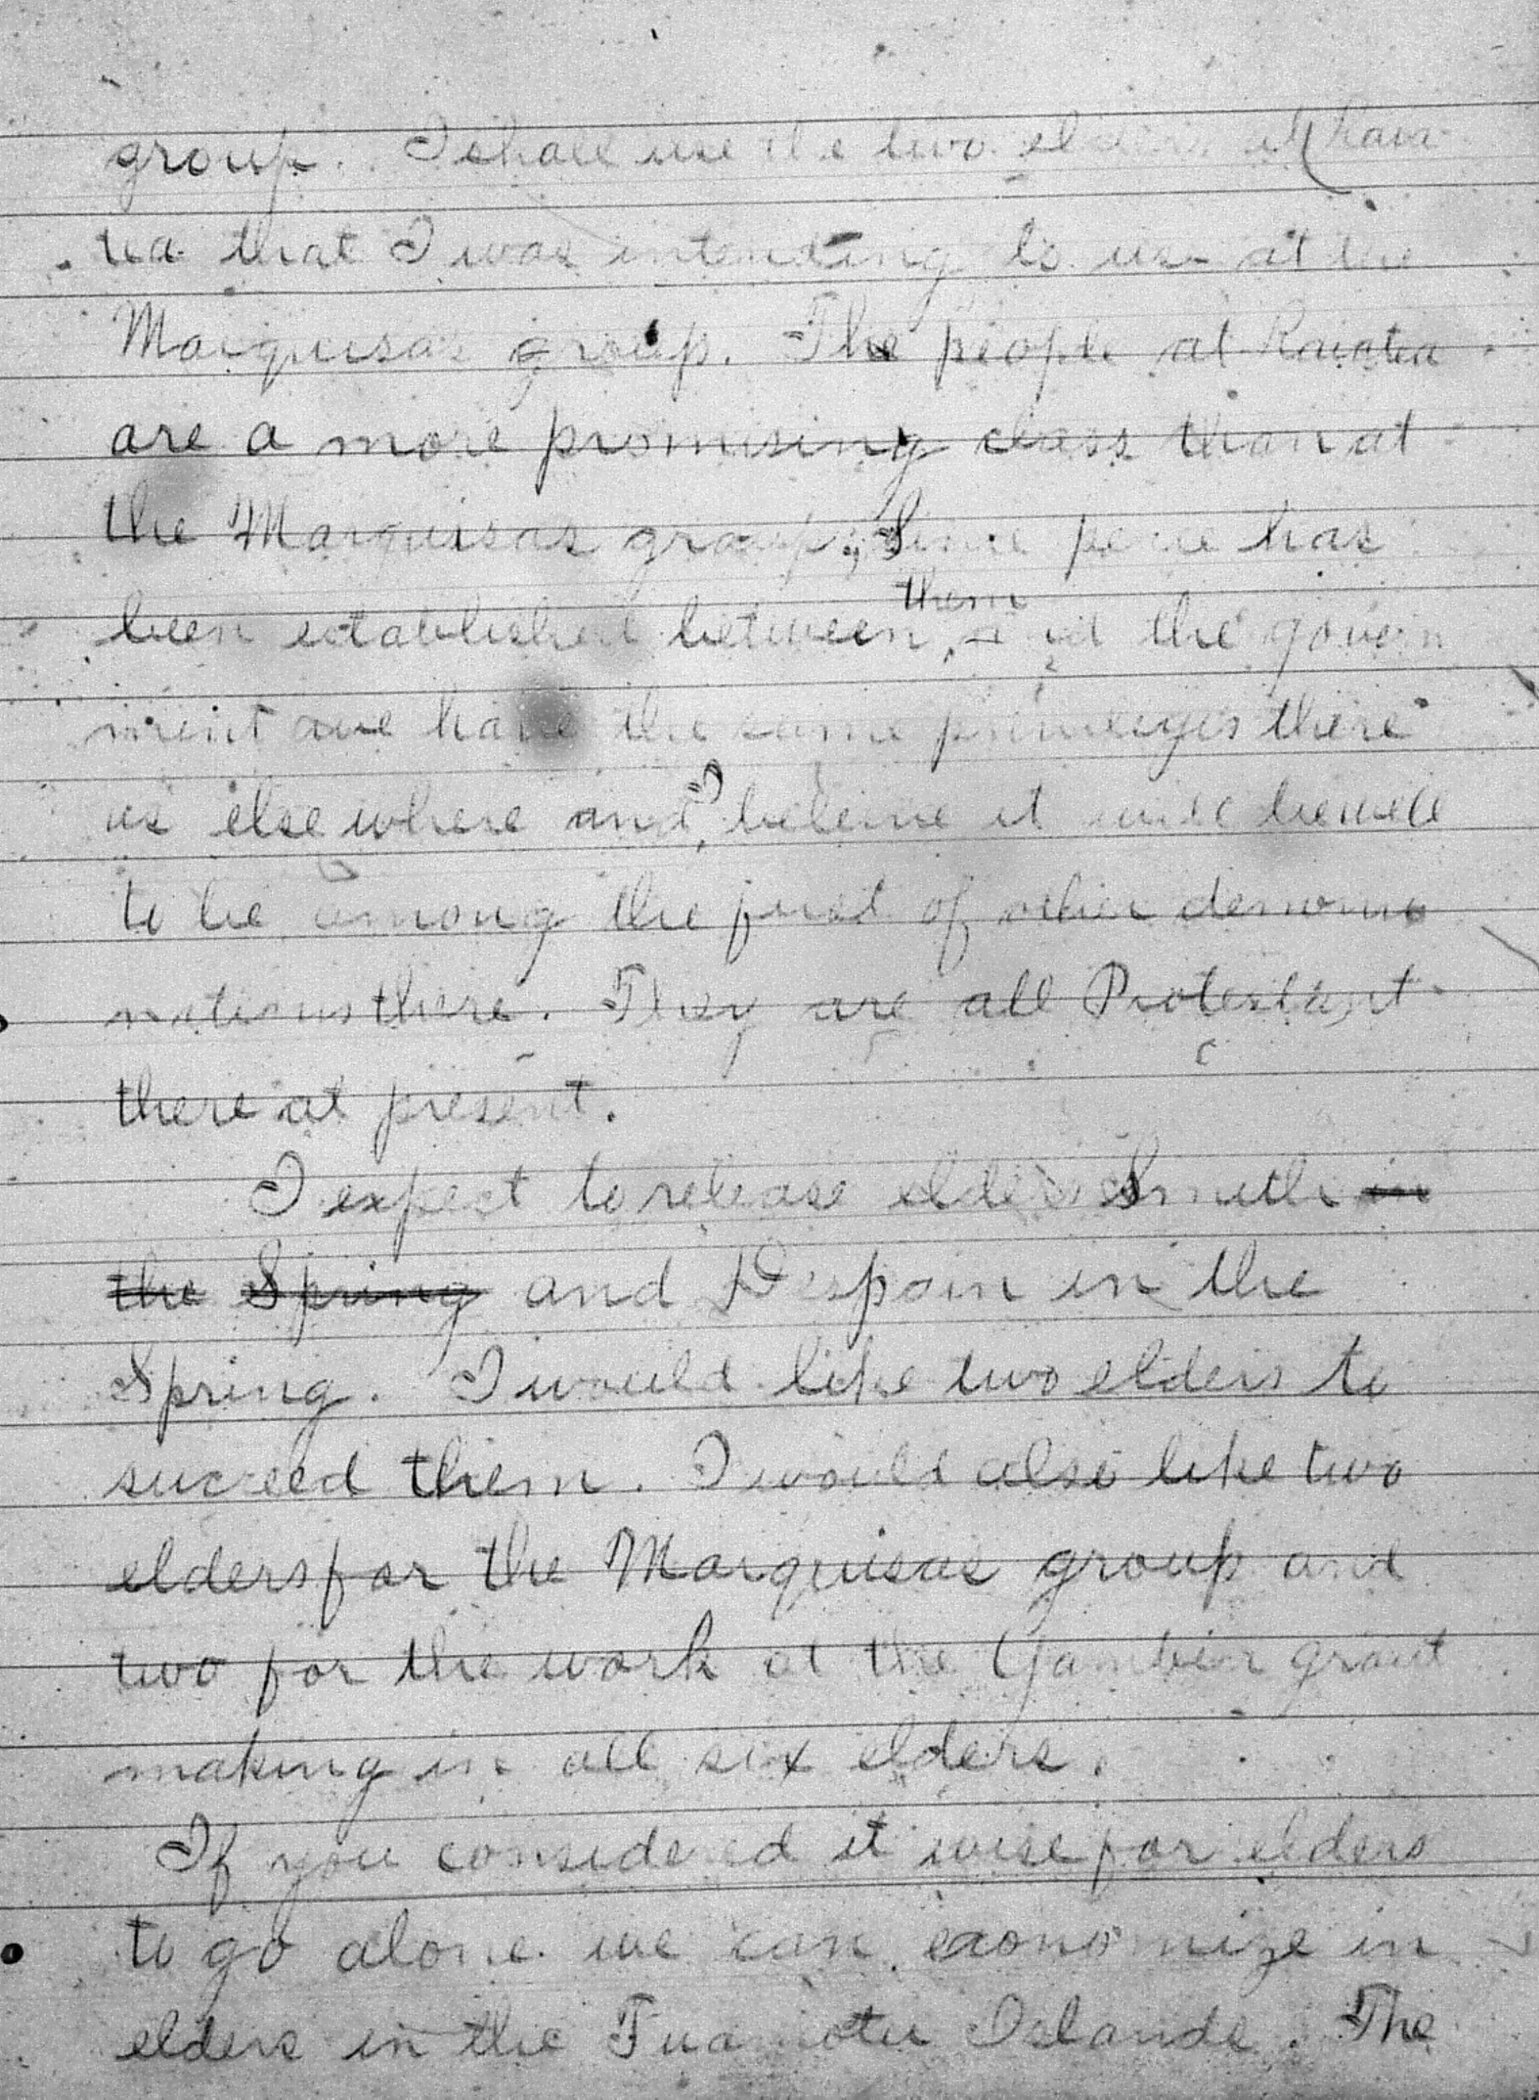 group. I shall use the two elders at Raia
tea that I was intending to use at the
Marquisas group. The people at Raiatea
are a more promising class than at
the Marquisas group; Since peace has
been established between them and the govern
ment we have the same privileges there
as else where and I beleive it will be well
to be among the first of other denomi
nations there. They are all Protestant
there at present.
I expect to release elders Smith in
the Spring and Despain in the
Spring. I would like two elders to
succeed them. I would also like two
elders for the Marquisas group and
two for the work at the Gambier
making in all six elders.
If you considered it wise for elders
to go alone we can economize in
elders in the Tuamotu Islands. The